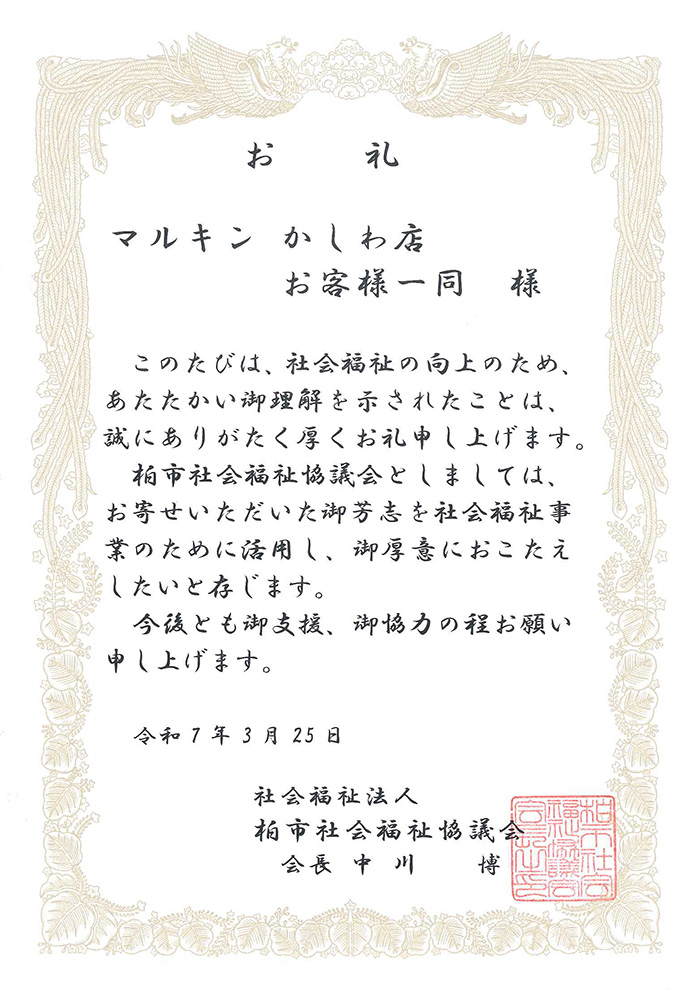 お 礼
マルキン かしわ店
お客様一同 様
このたびは、社会福祉の向上のため、
あたたかい御理解を示されたことは、
誠にありがたく厚くお礼申し上げます。
柏市社会福祉協議会としましては、
お寄せいただいた御芳志を社会福祉事
業のために活用し、御厚意におこたえ
したいと存じます。
今後とも御支援、御協力の程お願い
申し上げます。
令和7年3月25日
社会福祉法人
柏市社会福祉協議会
会長 中川 博